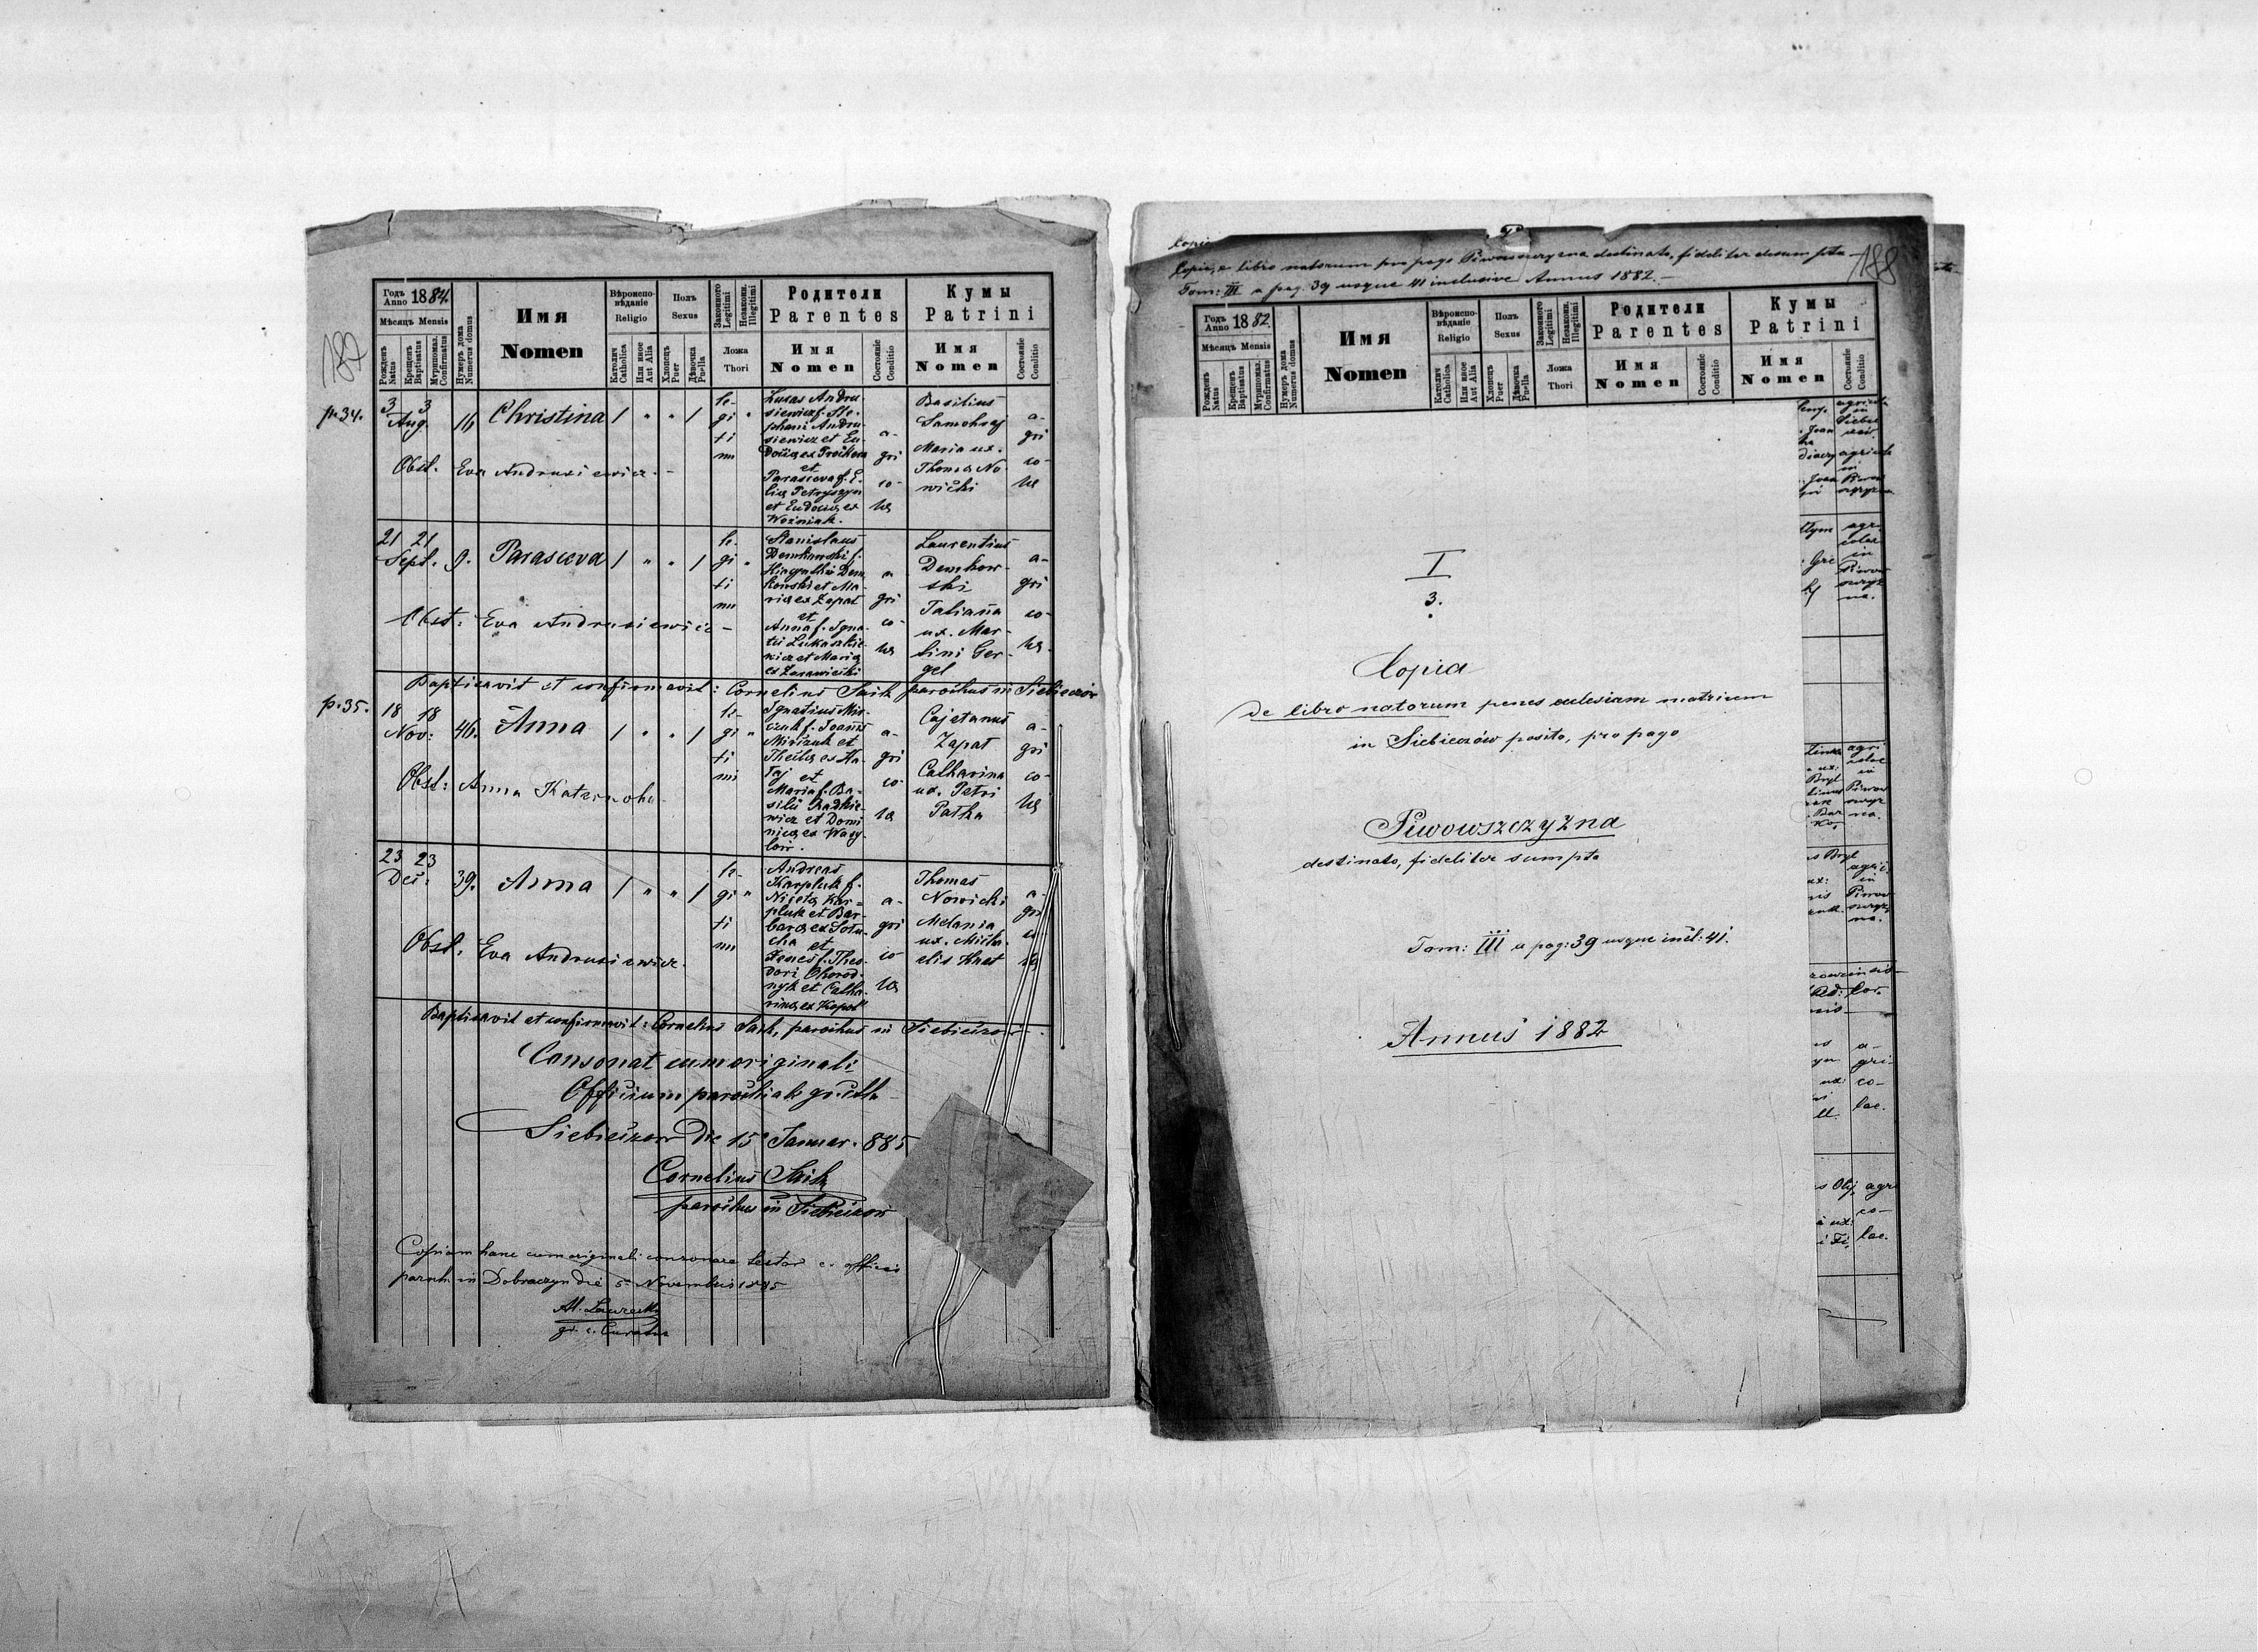 187
Годъ Anno 1884.
Мѣсяцъ Mensis
Рожденъ Natus
Крещенъ Baptisatus
Мѵропомаз. Confirmatus
Нумеръ дома Numerus domus
Имя
Nomen
Вѣроиспо-
вѣданіе
Religio
Католич Catholica
Или иное Aut Alia
Полъ
Sexus
Хлопець Puer
Дѣвочка Puella
Законного Legitimi
Незаконн. Illegitimi
Ложа
Thori
Родители
Parentes
Имя
Nomen
Состояніе Conditio
Кумы
Patrini
Имя
Nomen
Состояніе Conditio
p. 34.
3 3
Aug.
Christina
le-
gi
ti
mi
Lucas Andru-
siewicz f. Ste-
phani Andru-
siewicz et Eu-
et
Parasceva f. E-
liæ Petryszyn
et Eudociæ ex
Woźniak.
a-
gri
co-
læ
Basilius
Maria ux.
Thomæ No-
wicki
a-
gri
co-
læ
Obst. Eva Andrusiewicz.
21 21
Sept. 9. Parasceva
le-
gi
ti
mi
Stanislaus
Demkowski f.
Hiacynthi Dem-
kowski et Ma-
riæ ex Zapał
et
Anna f. Igna-
tii Lukaszkie-
wicz et Mariæ
a
gri
co-
læ
Laurentius
Demkow-
ski
Tatiana
ux. Mar-
tini Ger-
gel
a-
gri
co-
læ
Obst: Eva Andrusiewicz
Baptisavit et confirmavit: Cornelius Saik parochus in Siebieczów
p. 35.
18 18
Nov: 46. Anna
le-
gi
ti
mi
Ignatius Mir-
czuk f. Joannis
Mirczuk et
et
Maria f. Ba-
silii Radkie-
wicz et Domi-
nicæ ex Wasy-
lów.
a-
gri
co-
læ
Cajetanus
Zapał
Catharina
ux. Petri
Patka
a-
gri
co-
læ
Obst: Anna
23 23
Dec: 39. Anna
le-
gi
ti
mi
Andreas
Karpluk f.
Nicetæ Kar-
pluk et Bar-
baræ ex
et
Agnes f. Theo-
dori Chorod-
nyk et Catha-
rinæ ex
a-
gri
co
læ
Thomas
Nowicki
Melania
ux. Micha-
elis
a-
gri
co
læ
Obst. Eva Andrusiewicz.
Baptisavit et confirmavit: Cornelius Saik, parochus in Siebieczów.
Consonat cum originali:
Officium parochiale gr. cath.
Siebieczow die 15 Januar. 885
Cornelius Saik
parochus in Siebieczow
Copiam hanc cum originali consonare testor ex officio
paroch. in Dobraczyn die 5 Novembris 1885
gr. c. Curatus
188
Copia, e libro natorum pro pago Piwowszczyzna destinato, fideliter desumpta
Tom: III a pag. 39 usque 41 inclusive Annus 1882.
Годъ Anno 1882.
Мѣсяцъ Mensis
Рожденъ Natus
Крещенъ Baptisatus
Мѵропомаз. Confirmatus
Нумеръ дома Numerus domus
Имя
Nomen
Вѣроиспо-
вѣданіе
Religio
Католич Catholica
Или иное Aut Alia
Полъ
Sexus
Хлопець Puer
Дѣвочка Puella
Законного Legitimi
Незаконн. Illegitimi
Ложа
Thori
Родители
Parentes
Имя
Nomen
Состояніе Conditio
Кумы
Patrini
Имя
Nomen
Состояніе Conditio
I
3.
Copia
de libro natorum penes ecclesiam matricem
in Siebieczów posito, pro pago
Piwowszczyzna
destinato, fideliter sumpta
Tom: III a pag: 39 usque incl: 41.
Annus 1882